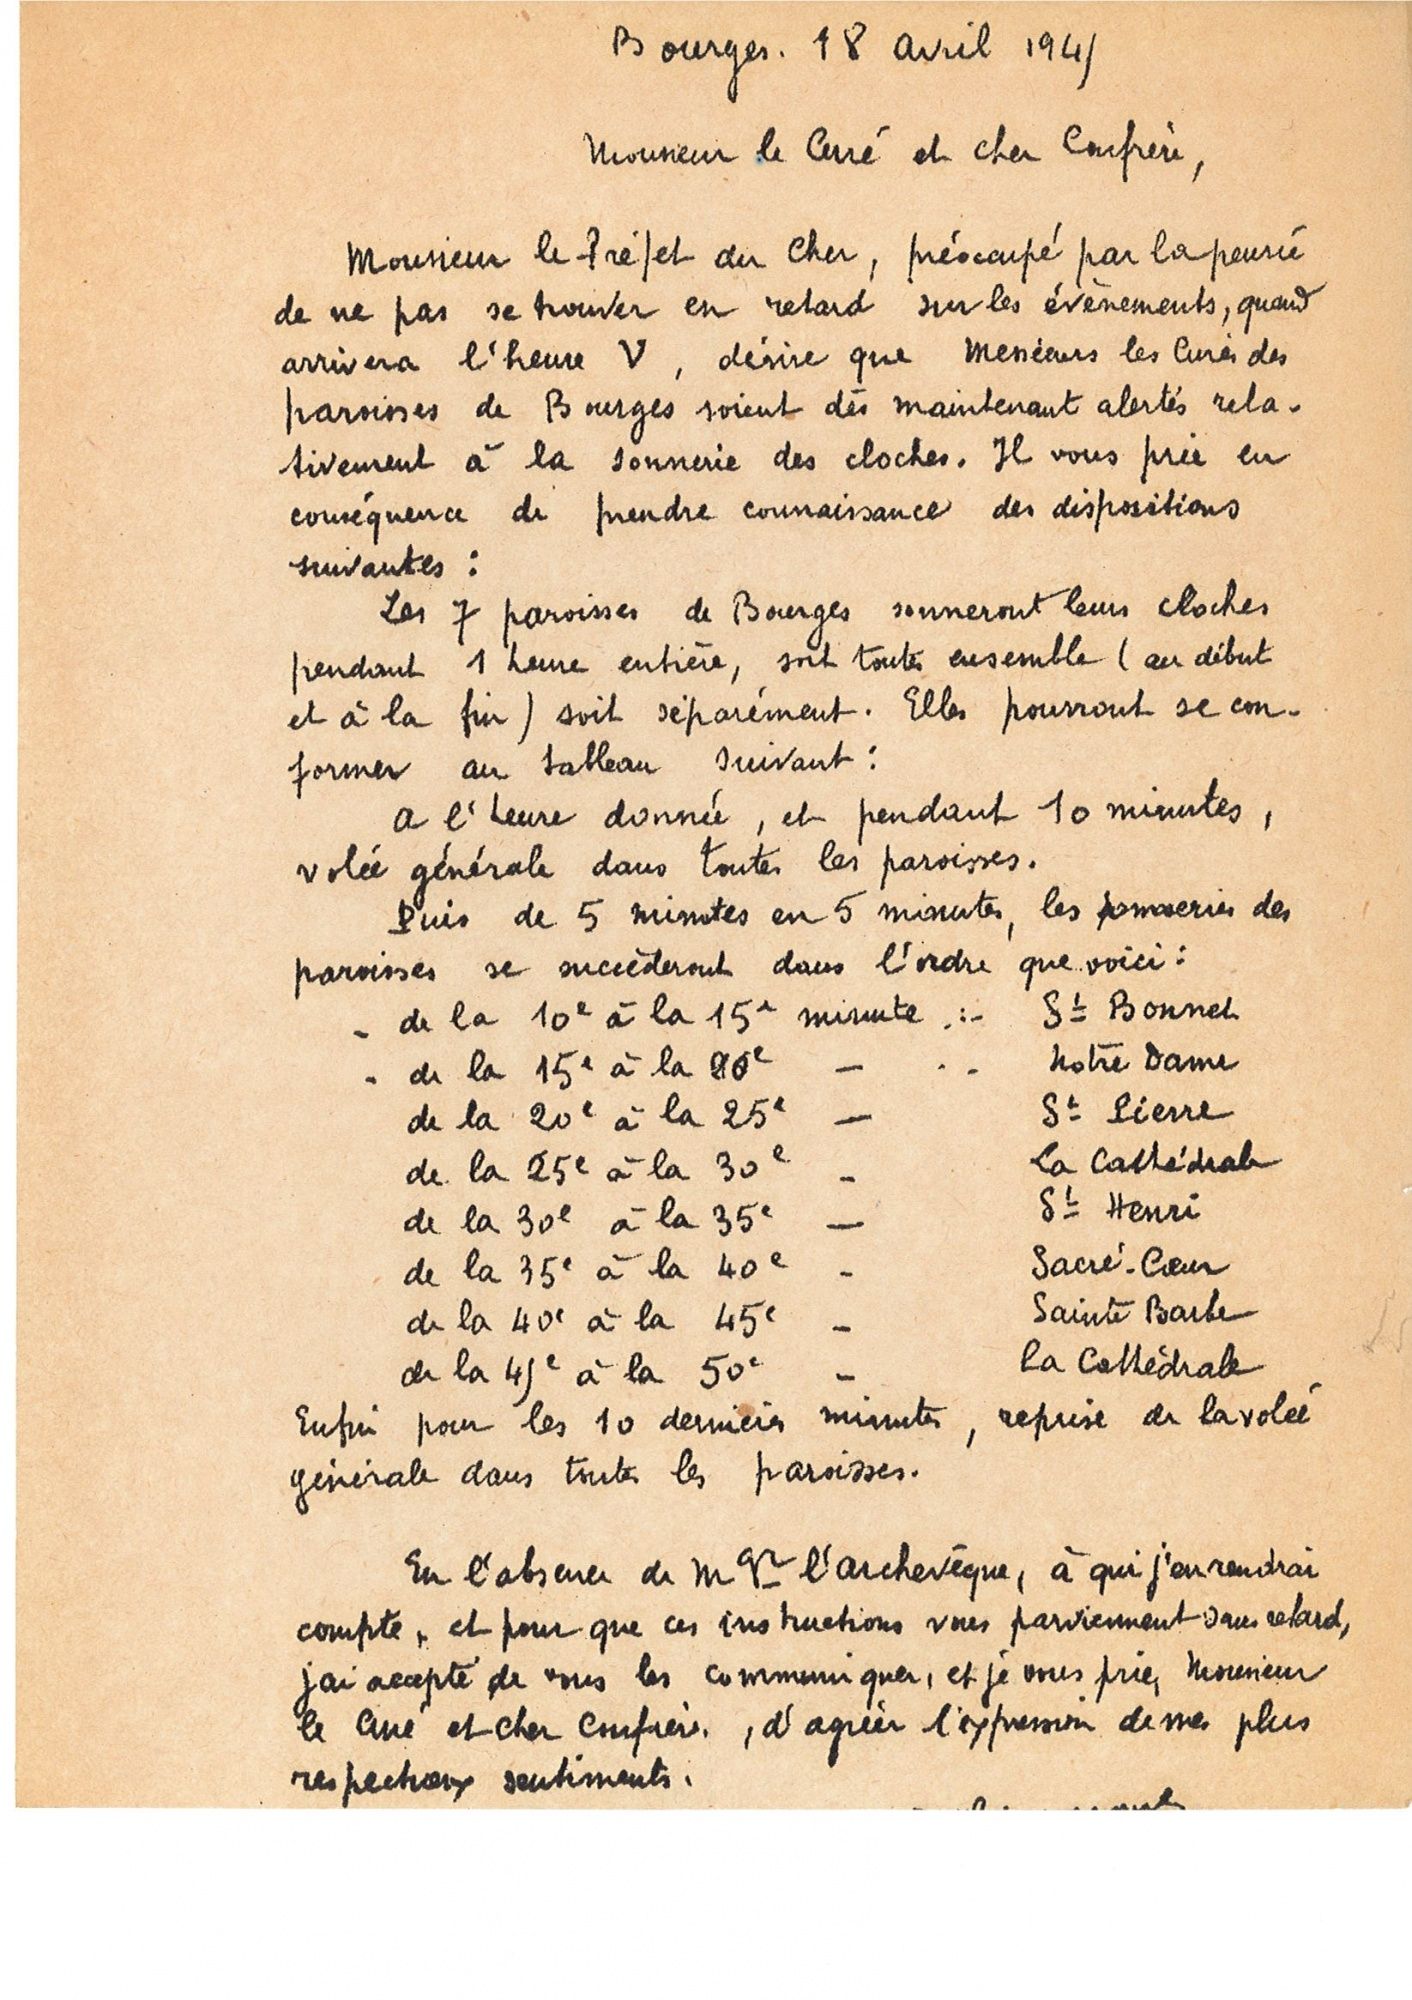 Bourges. 18 avril 1945
Monsieur le Curé et cher Confrère,
Monsieur le Préfet du Cher, préoccupé par la pensée
de ne pas se trouver en retard sur les évènements, quand
arrivera l'heure V, désire que Messieurs les Curés des
paroisses de Bourges soient dès maintenant alertés rela-
tivement à la sonnerie des cloches. Il vous prie en
conséquence de prendre connaissance des dispositions
suivantes :
Les 7 paroisses de Bourges sonneront leurs cloches
pendant 1 heure entière, soit toutes ensemble (au début
et à la fin) soit séparément. Elles pourront se con-
former au tableau suivant :
A l'heure donnée, et pendant 10 minutes,
volée générale dans toutes les paroisses.
Puis de 5 minutes en 5 minutes, les sonneries des
paroisses se succèderont dans l'ordre que voici :
- de la 10e à la 15e minute .:- St Bonnet
- de la 15e à la 20e — . - Notre Dame
de la 20e à la 25e — St Pierre
de la 25e à la 30e - La Cathédrale
de la 30e à la 35e — St Henri
de la 35e à la 40e - Sacré-Cœur
de la 40e à la 45e - Sainte Barbe
de la 45e à la 50e - La Cathédrale
Enfin pour les 10 dernières minutes, reprise de la volée
générale dans toutes les paroisses.
En l'absence de Mgr l'Archevêque, à qui j'en rendrai
compte, et pour que ces instructions vous parviennent sans retard,
j'ai accepté de vous les communiquer, et je vous prie, Monsieur
le Curé et cher Confrère, d'agréer l'expression de mes plus
respectueux sentiments.